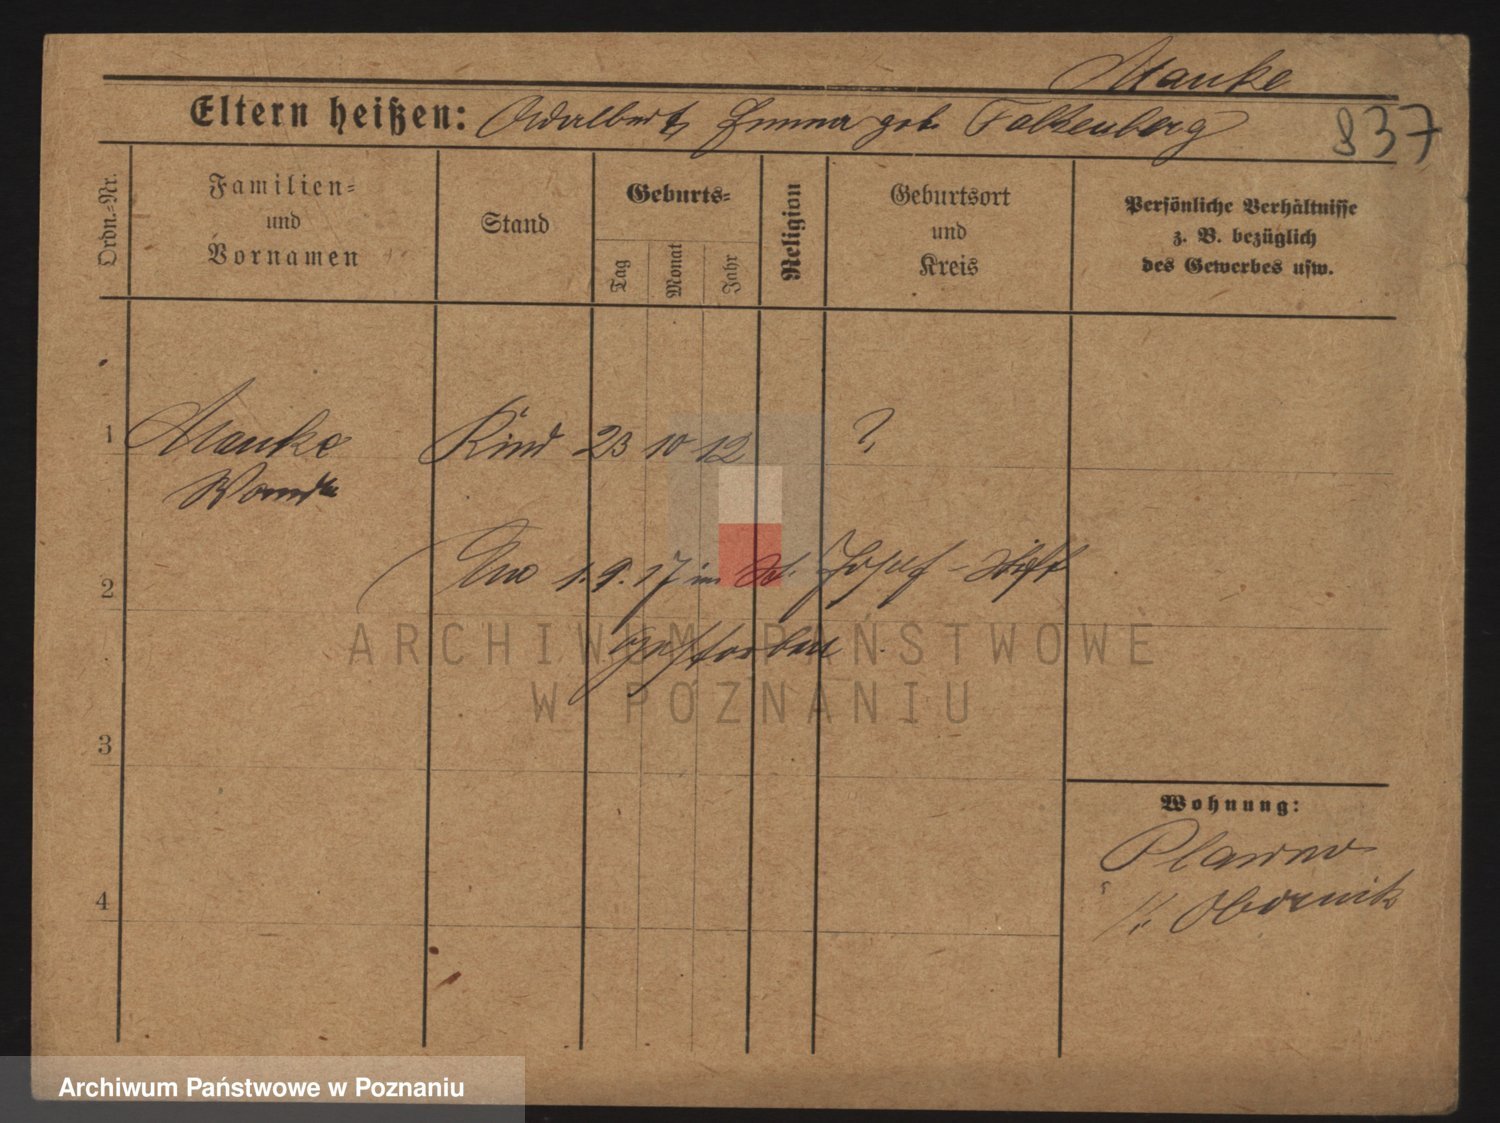 Manke
Eltern heißen: Adalbert, Emma geb. Falkenberg
837
Ordn.-Nr.
Familien-
und
Vornamen
Stand
Geburts-
Tag
Monat
Jahr
Religion
Geburtsort
und
Kreis
Persönliche Verhältnisse
z. B. bezüglich
des Gewerbes usw.
1 Manke Kind 23 10 12 ?
Wanda
2 1.9.17 im St. Josef-Stift
gestorben
ARCHIWUM PAŃSTWOWE
W POZNANIU
3
Wohnung:
Plawno
4
K. Obornik
Archiwum Państwowe w Poznaniu